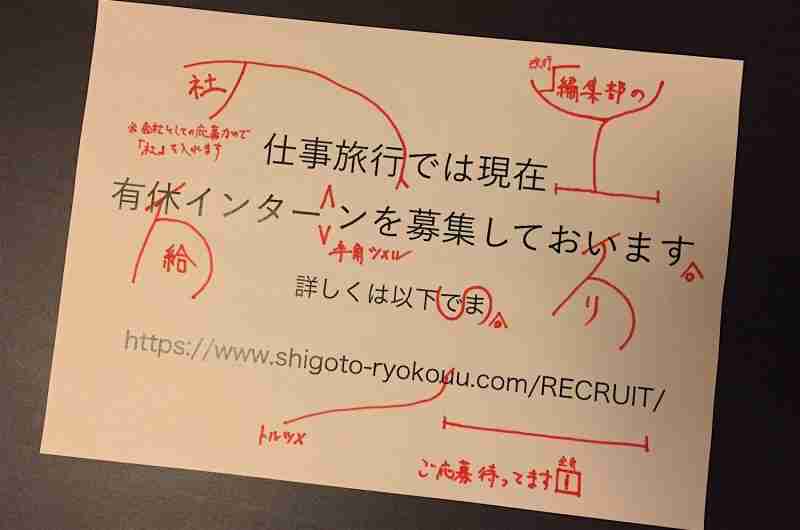 改行
社
編集部の
※会社としての応募なので
「社」を入れます
仕事旅行では現在
有休インターンを募集しておいます
。
半角ツメル
給
り
詳しくは以下でま
。
https://www.shigoto-ryokouu.com/RECRUIT/
トルツメ
全角
ご応募待ってます!